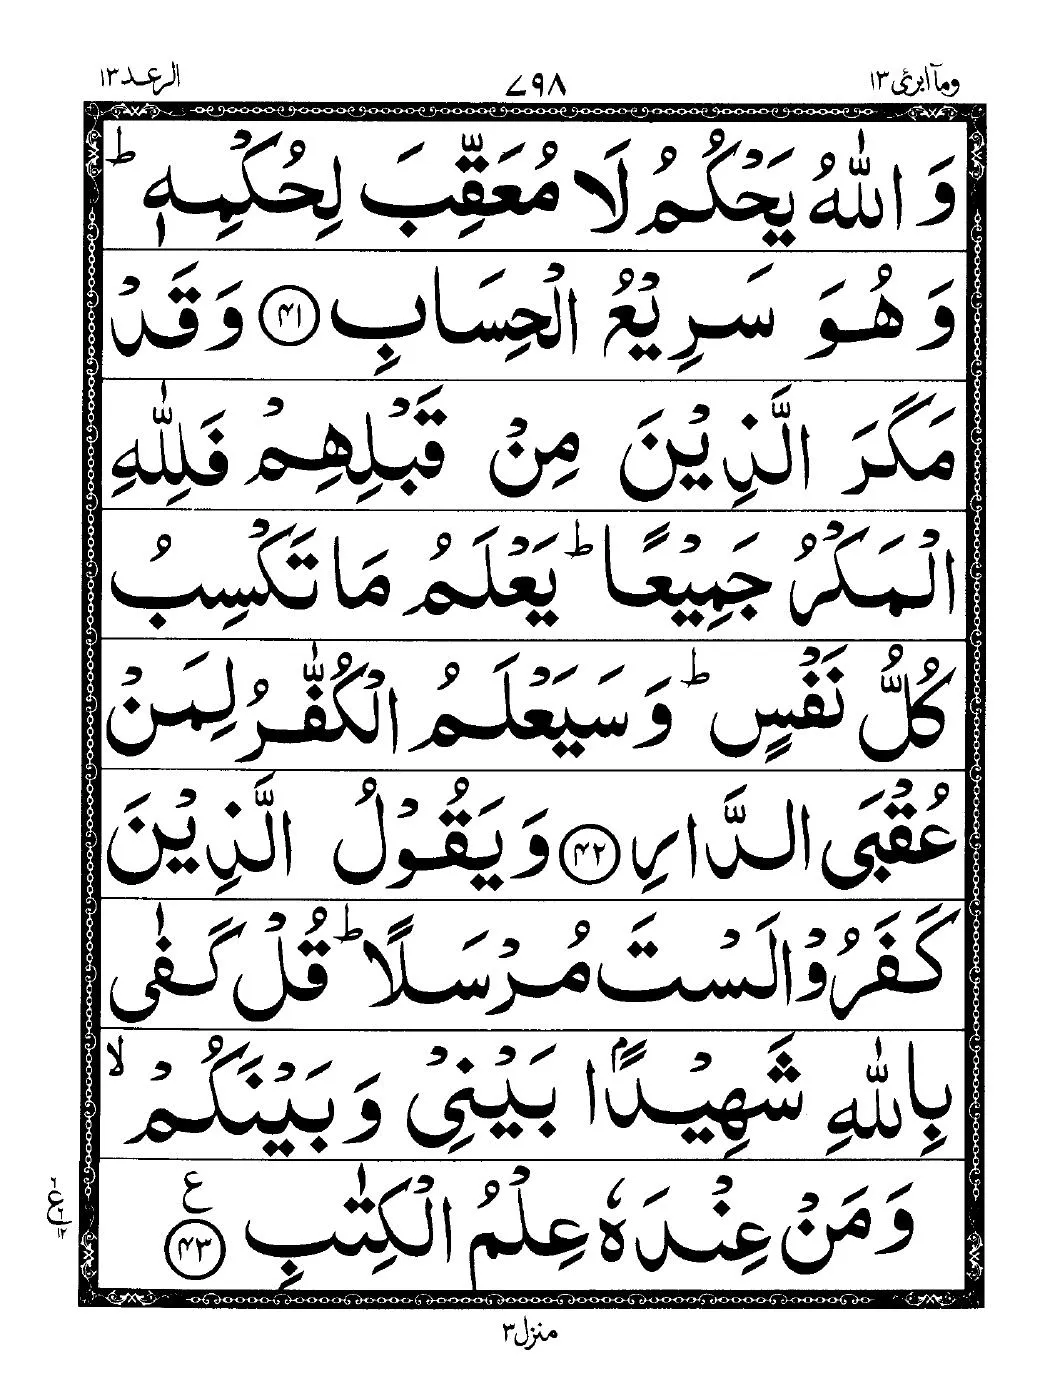 ومآ ابرئ ١٣ ٧٩٨ الرعد ١٣
وَ اللّٰهُ يَحْكُمُ لَا مُعَقِّبَ لِحُكْمِهٖ ؕ
وَ هُوَ سَرِيْعُ الْحِسَابِ ﴿۴۱﴾ وَ قَدْ
مَكَرَ الَّذِيْنَ مِنْ قَبْلِهِمْ فَلِلّٰهِ
الْمَكْرُ جَمِيْعًا ؕ يَعْلَمُ مَا تَكْسِبُ
كُلُّ نَفْسٍ ؕ وَ سَيَعْلَمُ الْكُفّٰرُ لِمَنْ
عُقْبَى الدَّارِ ﴿۴۲﴾ وَ يَقُوْلُ الَّذِيْنَ
كَفَرُوْا لَسْتَ مُرْسَلًا ؕ قُلْ كَفٰى
بِاللّٰهِ شَهِيْدًۢا بَيْنِيْ وَ بَيْنَكُمْ ۙ
وَ مَنْ عِنْدَهٗ عِلْمُ الْكِتٰبِ ﴿۴۳﴾ ع
ع
منزل ٣